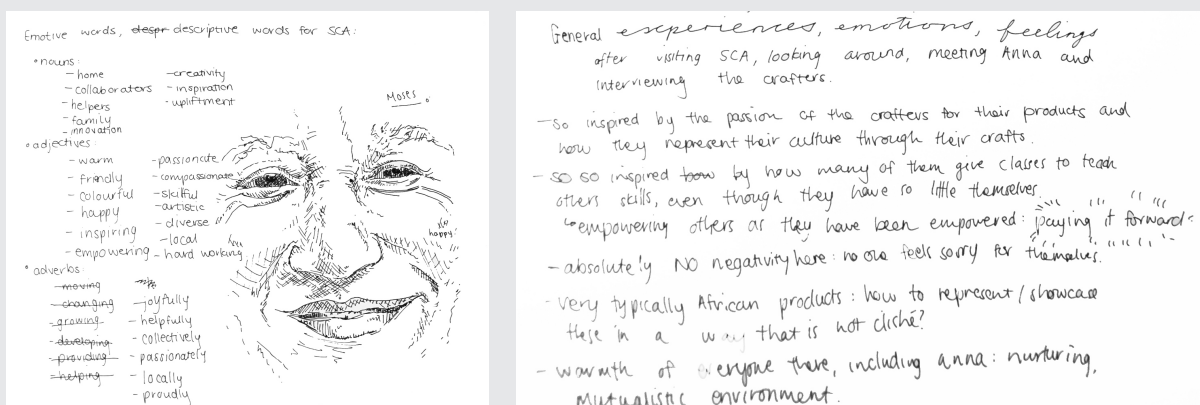 Emotive words, despr descriptive words for SCA:
• nouns:
– home
– collaborators
– helpers
– family
– innovation
– creativity
– inspiration
• upliftment
• adjectives:
– warm
– friendly
– colourful
– happy
– inspiring
– empowering
– passionate
– compassionate
– skilful
– artistic
– diverse
– local
– hard working
• adverbs:
– moving
– changing
– growing
– developing
– providing
– helping
– joyfully
– helpfully
– collectively
– passionately
– locally
– proudly
Moses
happy
General experiences, emotions, feelings
after visiting SCA, looking around, meeting Anna and
interviewing the crafters.
– so inspired by the passion of the crafters for their products and
how they represent their culture through their crafts.
– so so inspired how by how many of them give classes to teach
others skills, even though they have so little themselves.
empowering others as they have been empowered: paying it forward
– absolutely NO negativity here: no one feels sorry for themselves.
– very typically African products: how to represent/showcase
these in a way that is not clishé?
– warmth of everyone there, including anna: nurturing,
mutualistic environment.